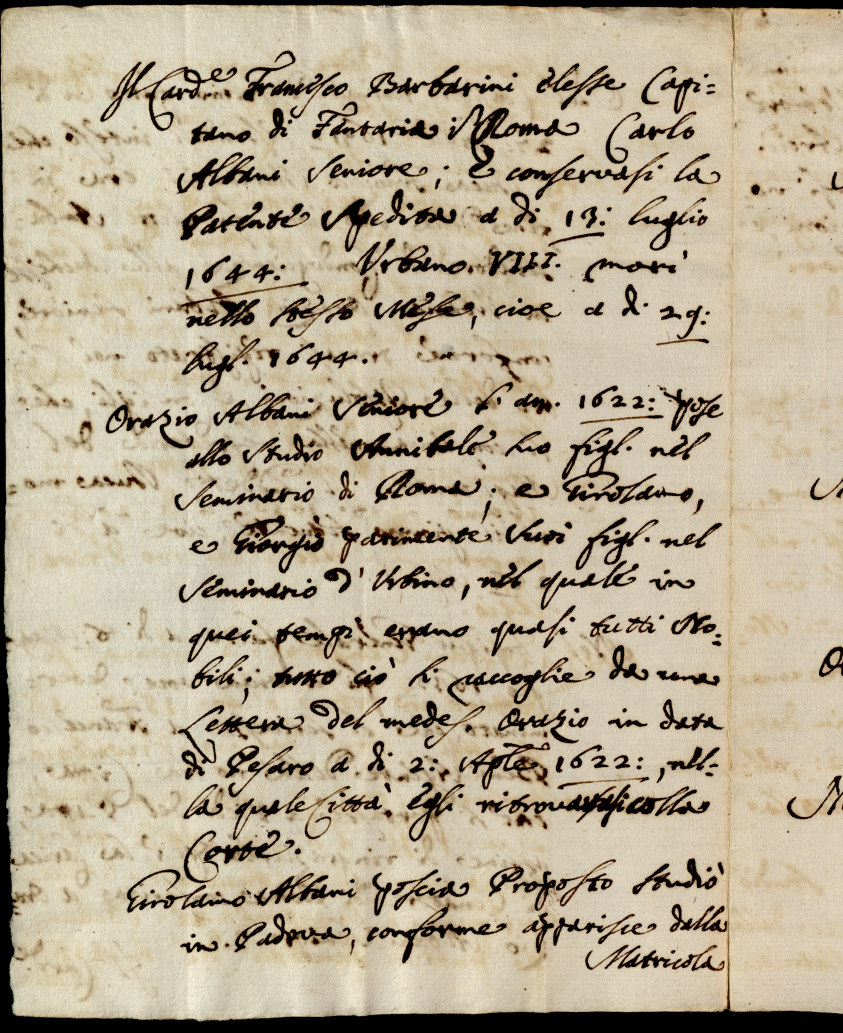 Il Card.e Francesco Barbarini elesse Capi=
tano di Fantaria i Roma Carlo
Albani Seniore; E conservasi la
Patente spedita a di 13: luglio
1644: Urbano VIII. morì
nello stesso Mese, cioe a di 29:
lugl. 1644.
Orazio Albani Seniore l' an. 1622: pose
allo Studio Annibale suo figl. nel
Seminario di Roma; e Girolamo,
e Giorgio parimente suoi figl. nel
Seminario d' Urbino, nel quale in
quei tempi erano quasi tutti No=
bili; tutto ciò si raccoglie da una
Lettera del medes. Orazio in data
di Pesaro a di 2: Aple 1622:, nel=
la quale Città egli ritrovavasi colla
Corte.
Girolamo Albani poscia Proposto studiò
in Padova, conforme apparisce dalla
Matricola